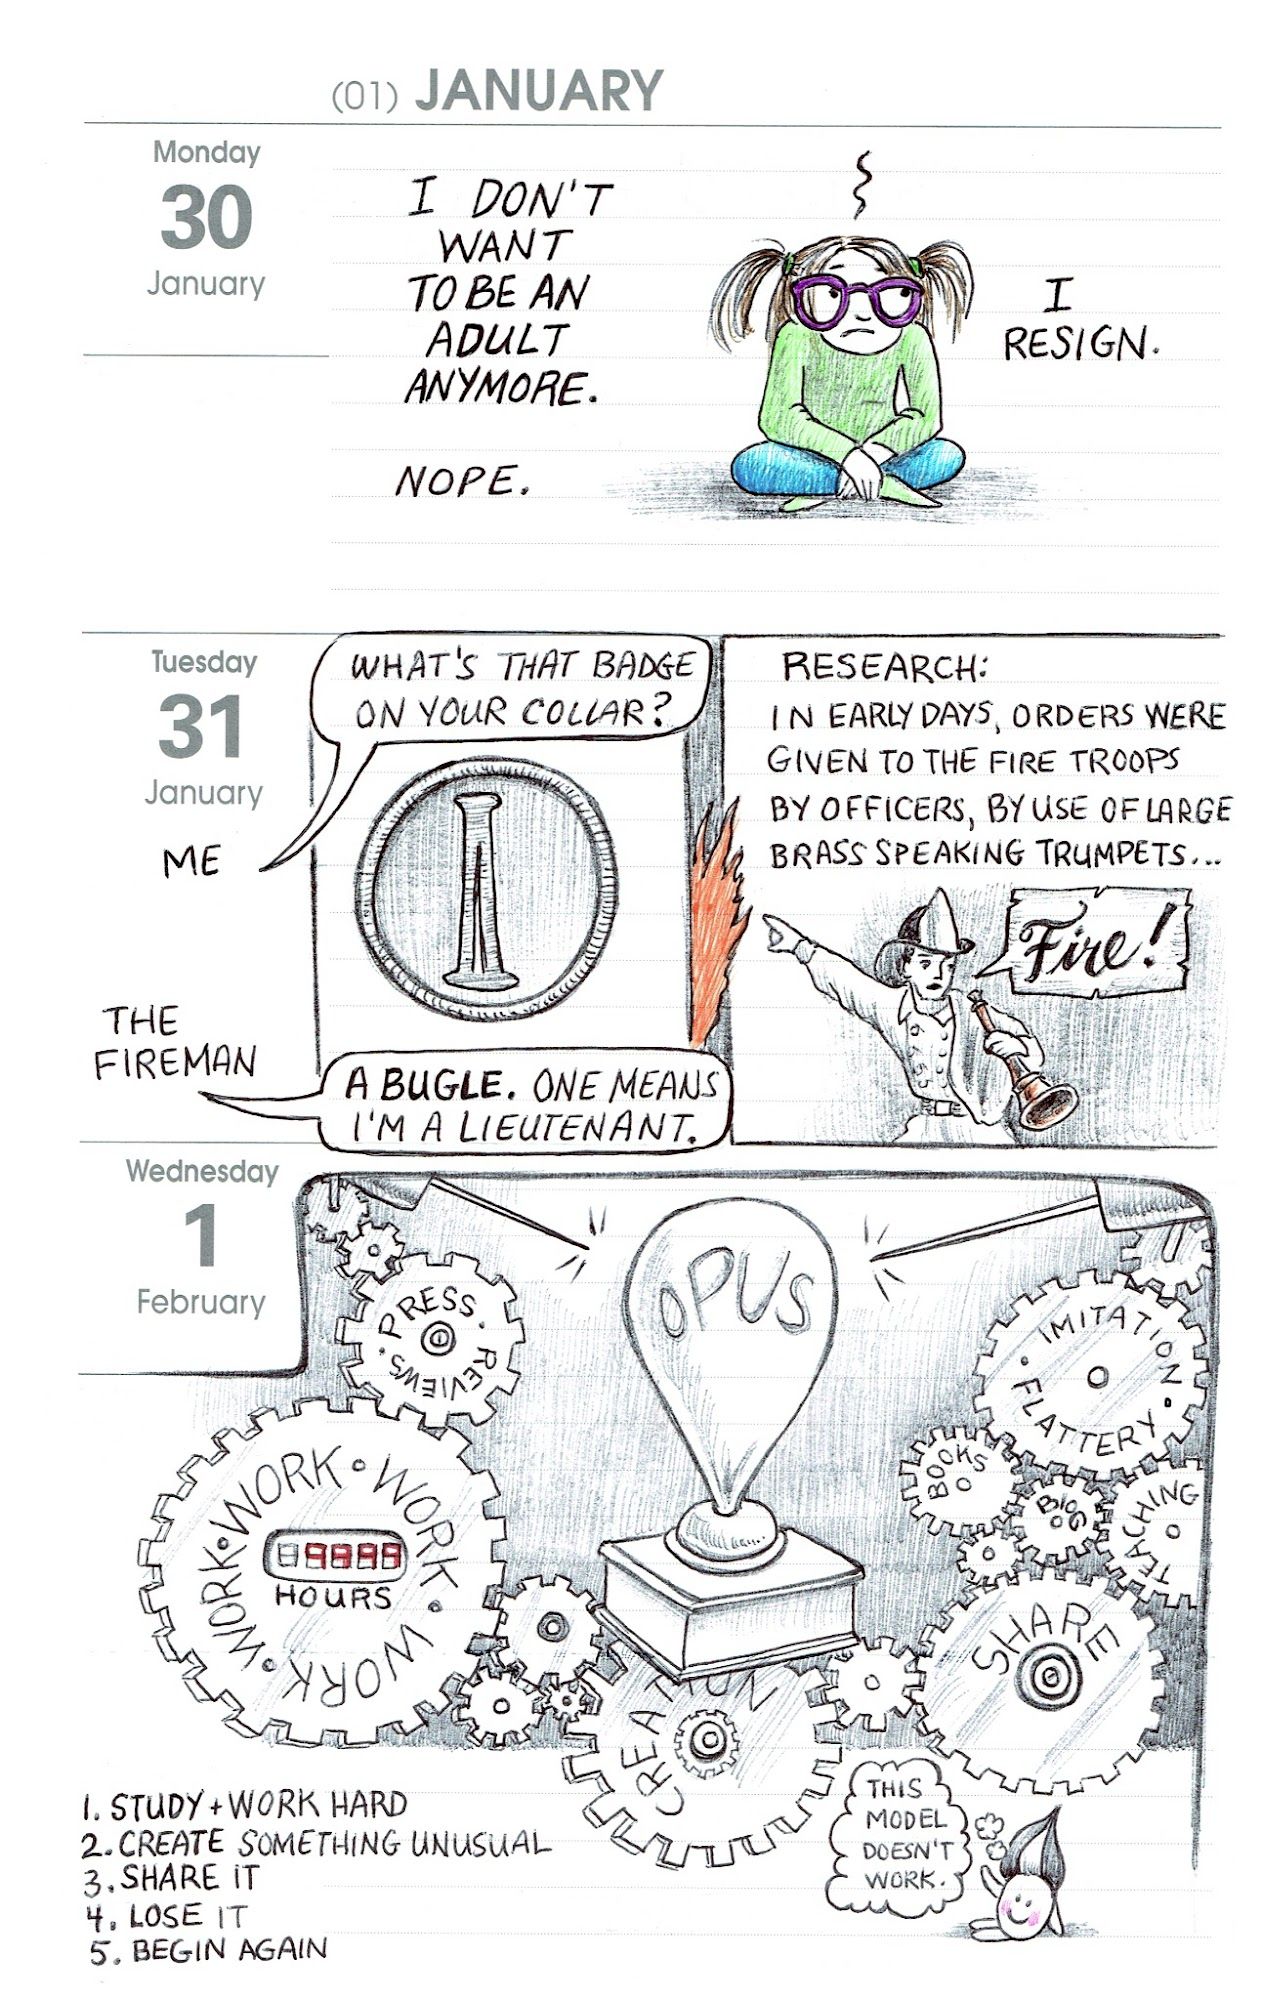 (01) JANUARY
Monday
30
January
I DON'T
WANT
TO BE AN
ADULT
ANYMORE.
NOPE.
I
RESIGN.
Tuesday
31
January
WHAT'S THAT BADGE
ON YOUR COLLAR?
ME
THE
FIREMAN
A BUGLE. ONE MEANS
I'M A LIEUTENANT.
RESEARCH:
IN EARLY DAYS, ORDERS WERE
GIVEN TO THE FIRE TROOPS
BY OFFICERS, BY USE OF LARGE
BRASS SPEAKING TRUMPETS...
Fire!
Wednesday
1
February
OPUS
PRESS • REVIEWS •
WORK • WORK • WORK • WORK • WORK •
9999
HOURS
CREATION
IMITATION • FLATTERY •
BOOKS
BLOG
TEACHING
SHARE
1. STUDY + WORK HARD
2. CREATE SOMETHING UNUSUAL
3. SHARE IT
4. LOSE IT
5. BEGIN AGAIN
THIS
MODEL
DOESN'T
WORK.